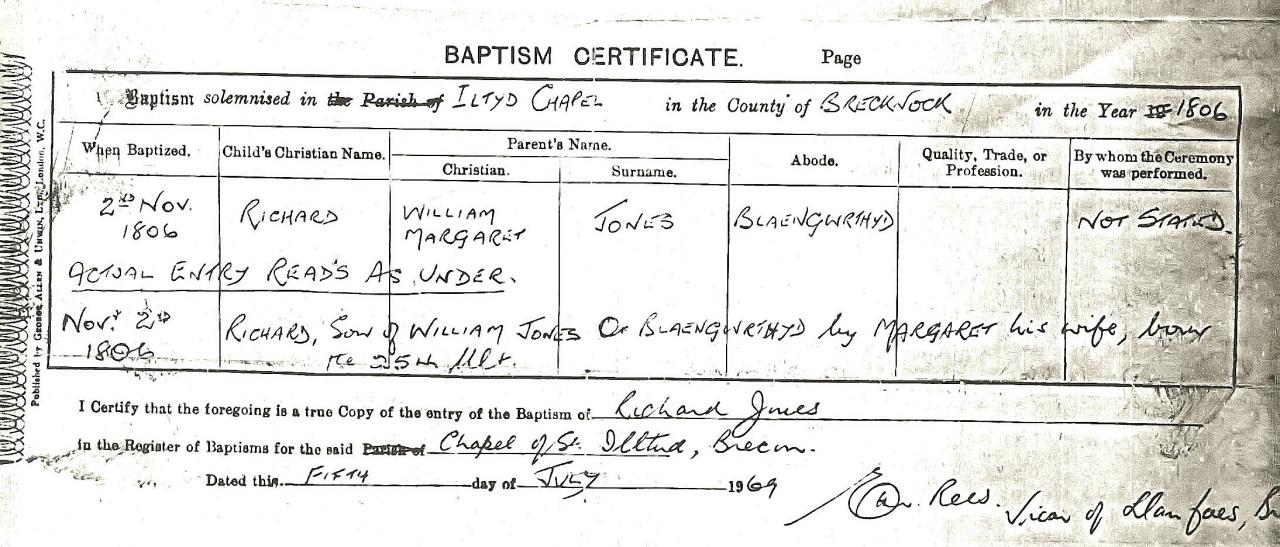 BAPTISM CERTIFICATE. Page
Baptism solemnised in the Parish of ILTYD CHAPEL in the County of BRECKNOCK in the Year 18 1806
When Baptized. Child's Christian Name. Parent's Name. Abode. Quality, Trade, or Profession. By whom the Ceremony was performed.
Christian. Surname.
2ND NOV. 1806 RICHARD WILLIAM MARGARET JONES BLAENGWRTHYD NOT STATED.
ACTUAL ENTRY READS AS UNDER.
Novr. 2D RICHARD, Son of WILLIAM JONES Of BLAENGWRTHYD by MARGARET his wife, born
1806 the 25th Ult.
I Certify that the foregoing is a true Copy of the entry of the Baptism of Richard Jones
in the Register of Baptisms for the said Parish of Chapel of St. Illtud, Brecon.
Dated this FIFTH day of JULY 1969
Rees. Vicar of Llanfaes,
Published by GEORGE ALLEN & UNWIN, LTD., London, W.C.